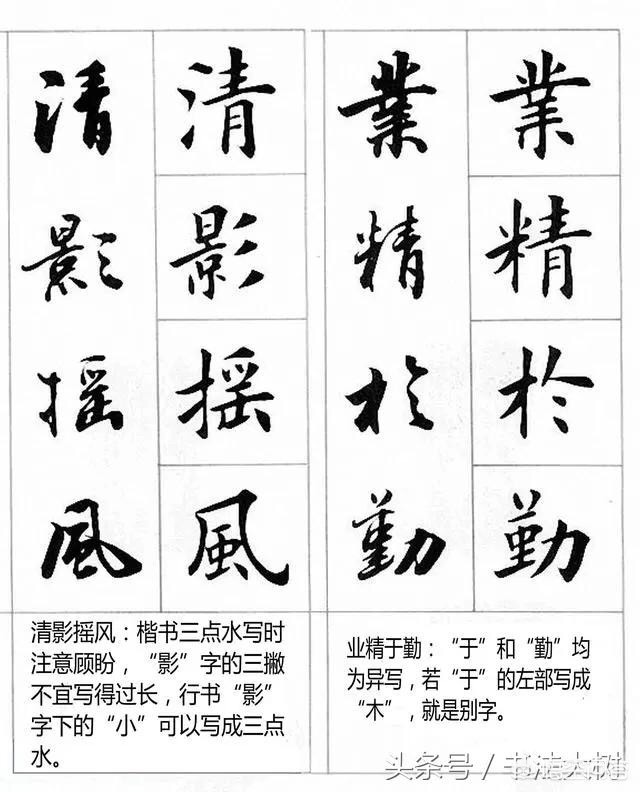 業精於勤
業精於勤
清影摇風
清影摇風
清影摇风：楷书三点水写时
注意顾盼，“影”字的三撇
不宜写得过长，行书“影”
字下的“小”可以写成三点
水。
业精于勤：“于”和“勤”均
为异写，若“于”的左部写成
“木”，就是别字。
头条号 / 书法大树